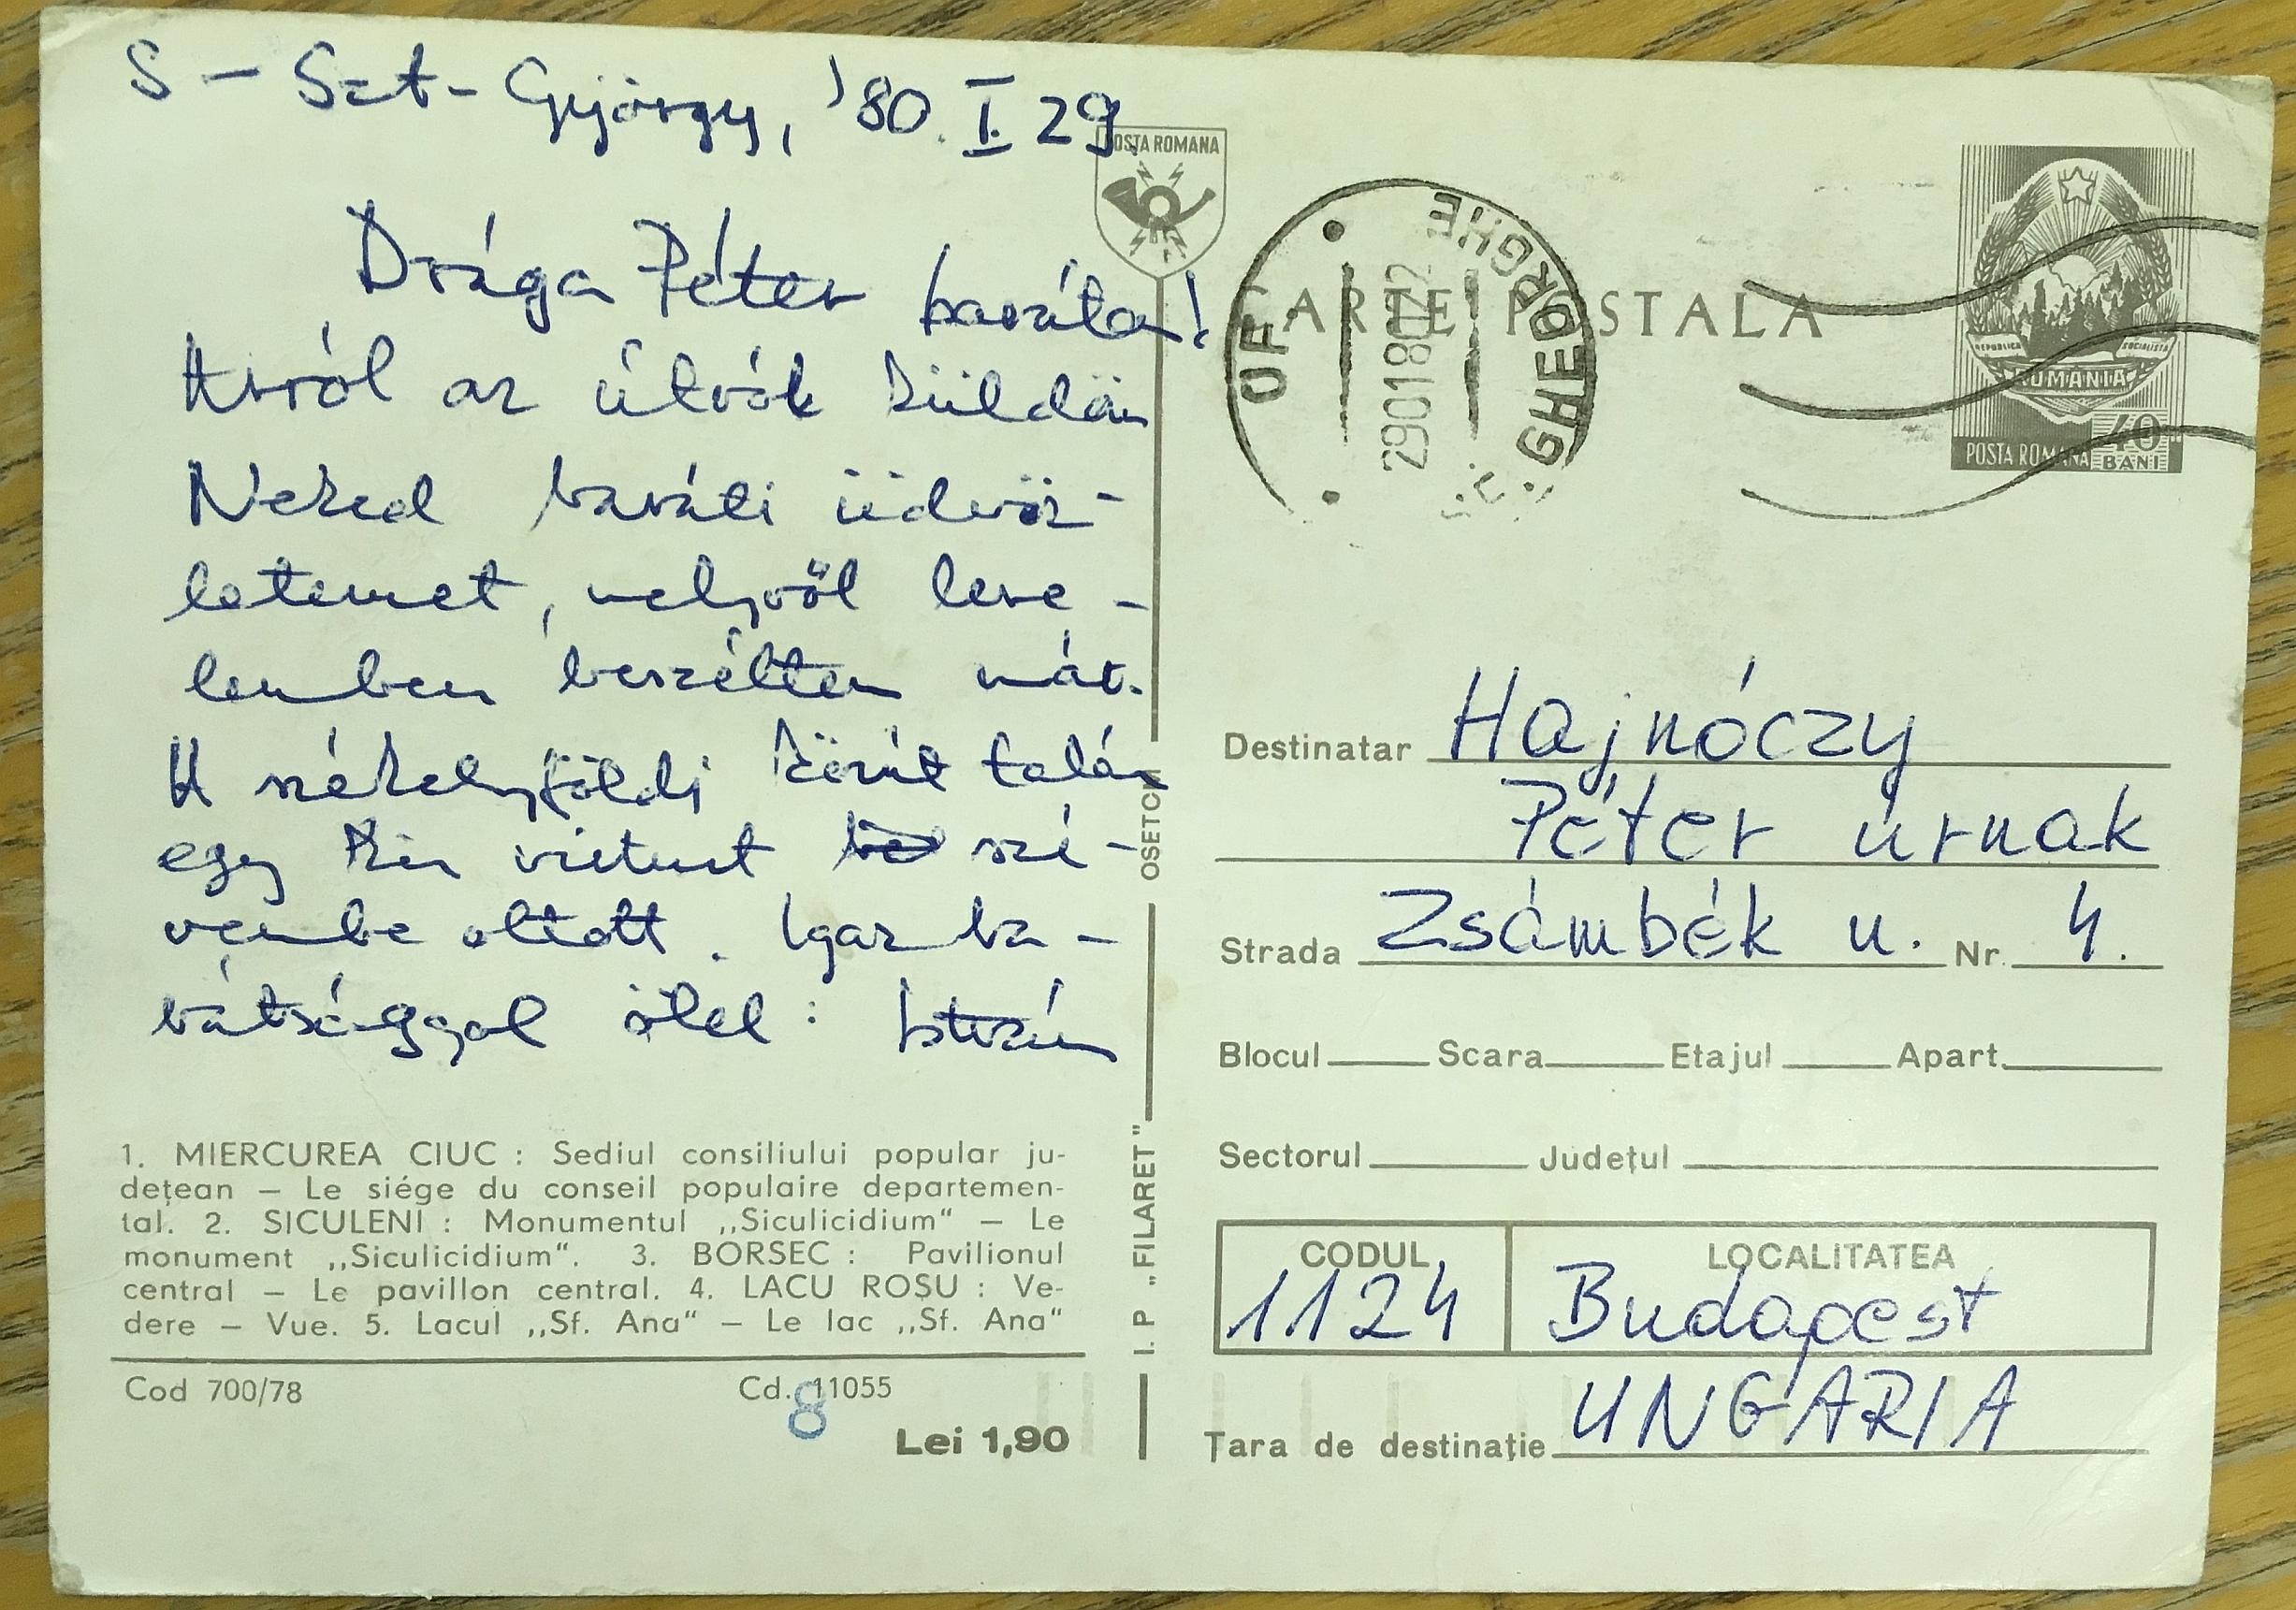 S-Szt-György, '80. I. 29.
Drága Péter barátom!
Arról az útról küldöm
Neked baráti üdvöz-
letemet, melyről leve-
lemben beszéltem már.
A székelyföldi körút talán
egy kis virtust szí-
vembe oltott. Igaz ba-
rátsággal ölel: István
1. MIERCUREA CIUC : Sediul consiliului popular ju-
dețean — Le siége du conseil populaire departemen-
tal. 2. SICULENI : Monumentul „Siculicidium“ — Le
monument „Siculicidium“. 3. BORSEC : Pavilionul
central — Le pavillon central. 4. LACU ROȘU : Ve-
dere — Vue. 5. Lacul „Sf. Ana“ — Le lac „Sf. Ana“
Cod 700/78 Cd. 11055
8
Lei 1,90
I. P. „FILARET“
POSTA ROMANA
CARTE POSTALA
OF.
GHEORGHE
GHEORGHE
REPUBLICA SOCIALISTA
ROMANIA
POSTA ROMANA 40 BANI
Destinatar Hajnóczy
Péter úrnak
Strada Zsámbék u. Nr. 4.
Blocul Scara Etajul Apart.
Sectorul Județul
CODUL LOCALITATEA
1124 Budapest
Țara de destinație UNGARIA